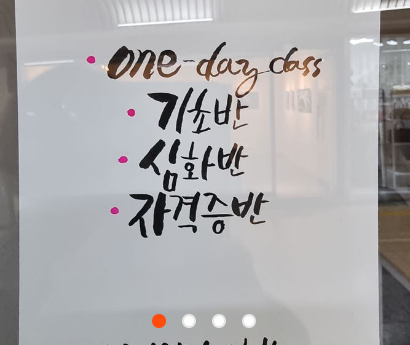 • one-day class
• 기초반
• 심화반
• 자격증반